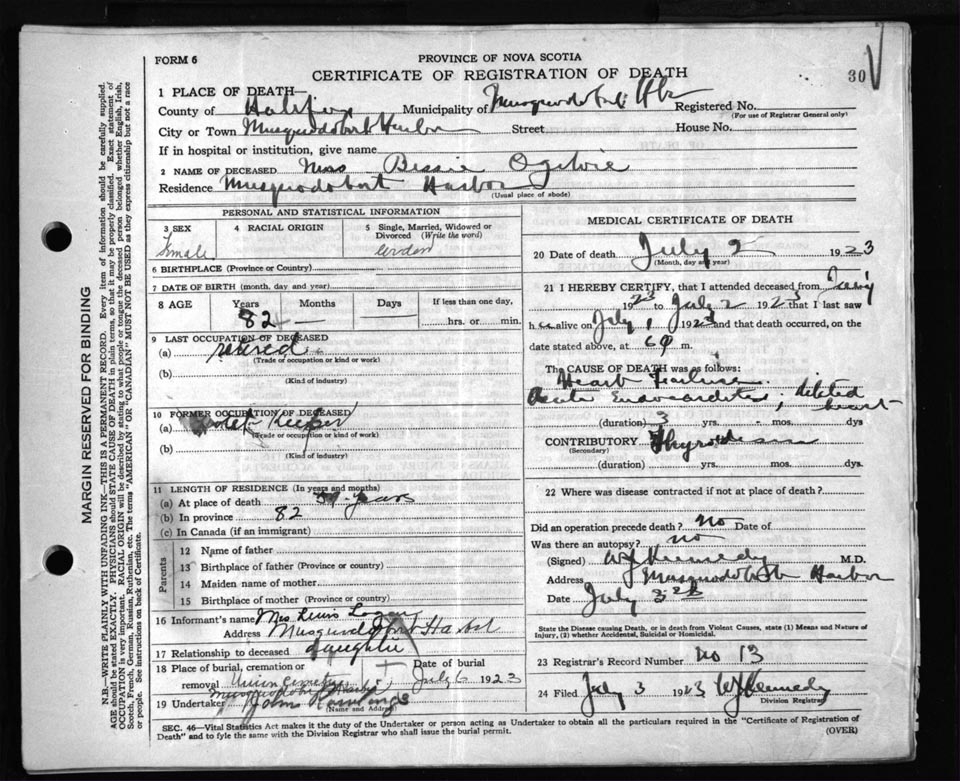 FORM 6
PROVINCE OF NOVA SCOTIA
CERTIFICATE OF REGISTRATION OF DEATH
30
1 PLACE OF DEATH—
County of Halifax Municipality of Musquodoboit Hbr Registered No.
(For use of Registrar General only)
City or Town Musquodoboit Harbor Street House No.
If in hospital or institution, give name
2 NAME OF DECEASED Mrs Bessie Ogilvie
Residence Musquodoboit Harbor
(Usual place of abode)
PERSONAL AND STATISTICAL INFORMATION
3 SEX
Female
4 RACIAL ORIGIN
5 Single, Married, Widowed or Divorced (Write the word)
6 BIRTHPLACE (Province or Country)
7 DATE OF BIRTH (month, day, and year)
8 AGE Years Months Days If less than one day,
82 — hrs. or min.
9 LAST OCCUPATION OF DECEASED
(a) retired
(Trade or occupation or kind of work)
(b)
(Kind of industry)
10 FORMER OCCUPATION OF DECEASED
(a) Keeper
(Trade or occupation or kind of work)
(b)
(Kind of industry)
11 LENGTH OF RESIDENCE (In years and months)
(a) At place of death years
(b) In province 82
(c) In Canada (if an immigrant)
Parents
12 Name of father
13 Birthplace of father (Province or country)
14 Maiden name of mother
15 Birthplace of mother (Province or country)
16 Informant's name Mrs Lewis Logan
Address Musquodoboit Harbor
17 Relationship to deceased daughter
18 Place of burial, cremation or removal Union Cemetery
Musquodoboit Harbor
Date of burial
July 6 1923
19 Undertaker John Rawlings
(Name and Address)
MEDICAL CERTIFICATE OF DEATH
20 Date of death July 2 1923
(Month, day and year)
21 I HEREBY CERTIFY, that I attended deceased from
1923 to July 2 1923 that I last saw
h alive on July 1 1923 and that death occurred, on the
date stated above, at 6 p m.
The CAUSE OF DEATH was as follows:
Heart Failure.
Acute Endocarditis, dilated heart
(duration) 3 yrs. mos. dys
CONTRIBUTORY
(Secondary)
(duration) yrs. mos. dys.
22 Where was disease contracted if not at place of death?
Did an operation precede death? no Date of
Was there an autopsy? no
(Signed) WJ Kennedy M.D.
Address Musquodoboit Harbor
Date July 3 23
State the Disease causing Death, or in death from Violent Causes, state (1) Means and Nature of
Injury, (2) whether Accidental, Suicidal or Homicidal.
23 Registrar's Record Number No 13
24 Filed July 3 1923 WJ Kennedy
Division Registrar
SEC. 46—Vital Statistics Act makes it the duty of the Undertaker or person acting as Undertaker to obtain all the particulars required in the "Certificate of Registration of
Death" and to fyle the same with the Division Registrar who shall issue the burial permit.
(OVER)
MARGIN RESERVED FOR BINDING
N.B.—WRITE PLAINLY WITH UNFADING INK—THIS IS A PERMANENT RECORD. Every item of information should be carefully supplied.
AGE should be stated EXACTLY. PHYSICIANS should STATE CAUSE OF DEATH in plain terms, so that it may be properly classified. Exact statement of
OCCUPATION is very important. RACIAL ORIGIN will be described by stating to what people or tongue the deceased person belonged whether English, Irish,
Scotch, French, German, Russian, Ruthenian, etc. The terms "AMERICAN" or "CANADIAN" MUST NOT BE USED as they express citizenship but not a race
of people. See instructions on back of Certificate.